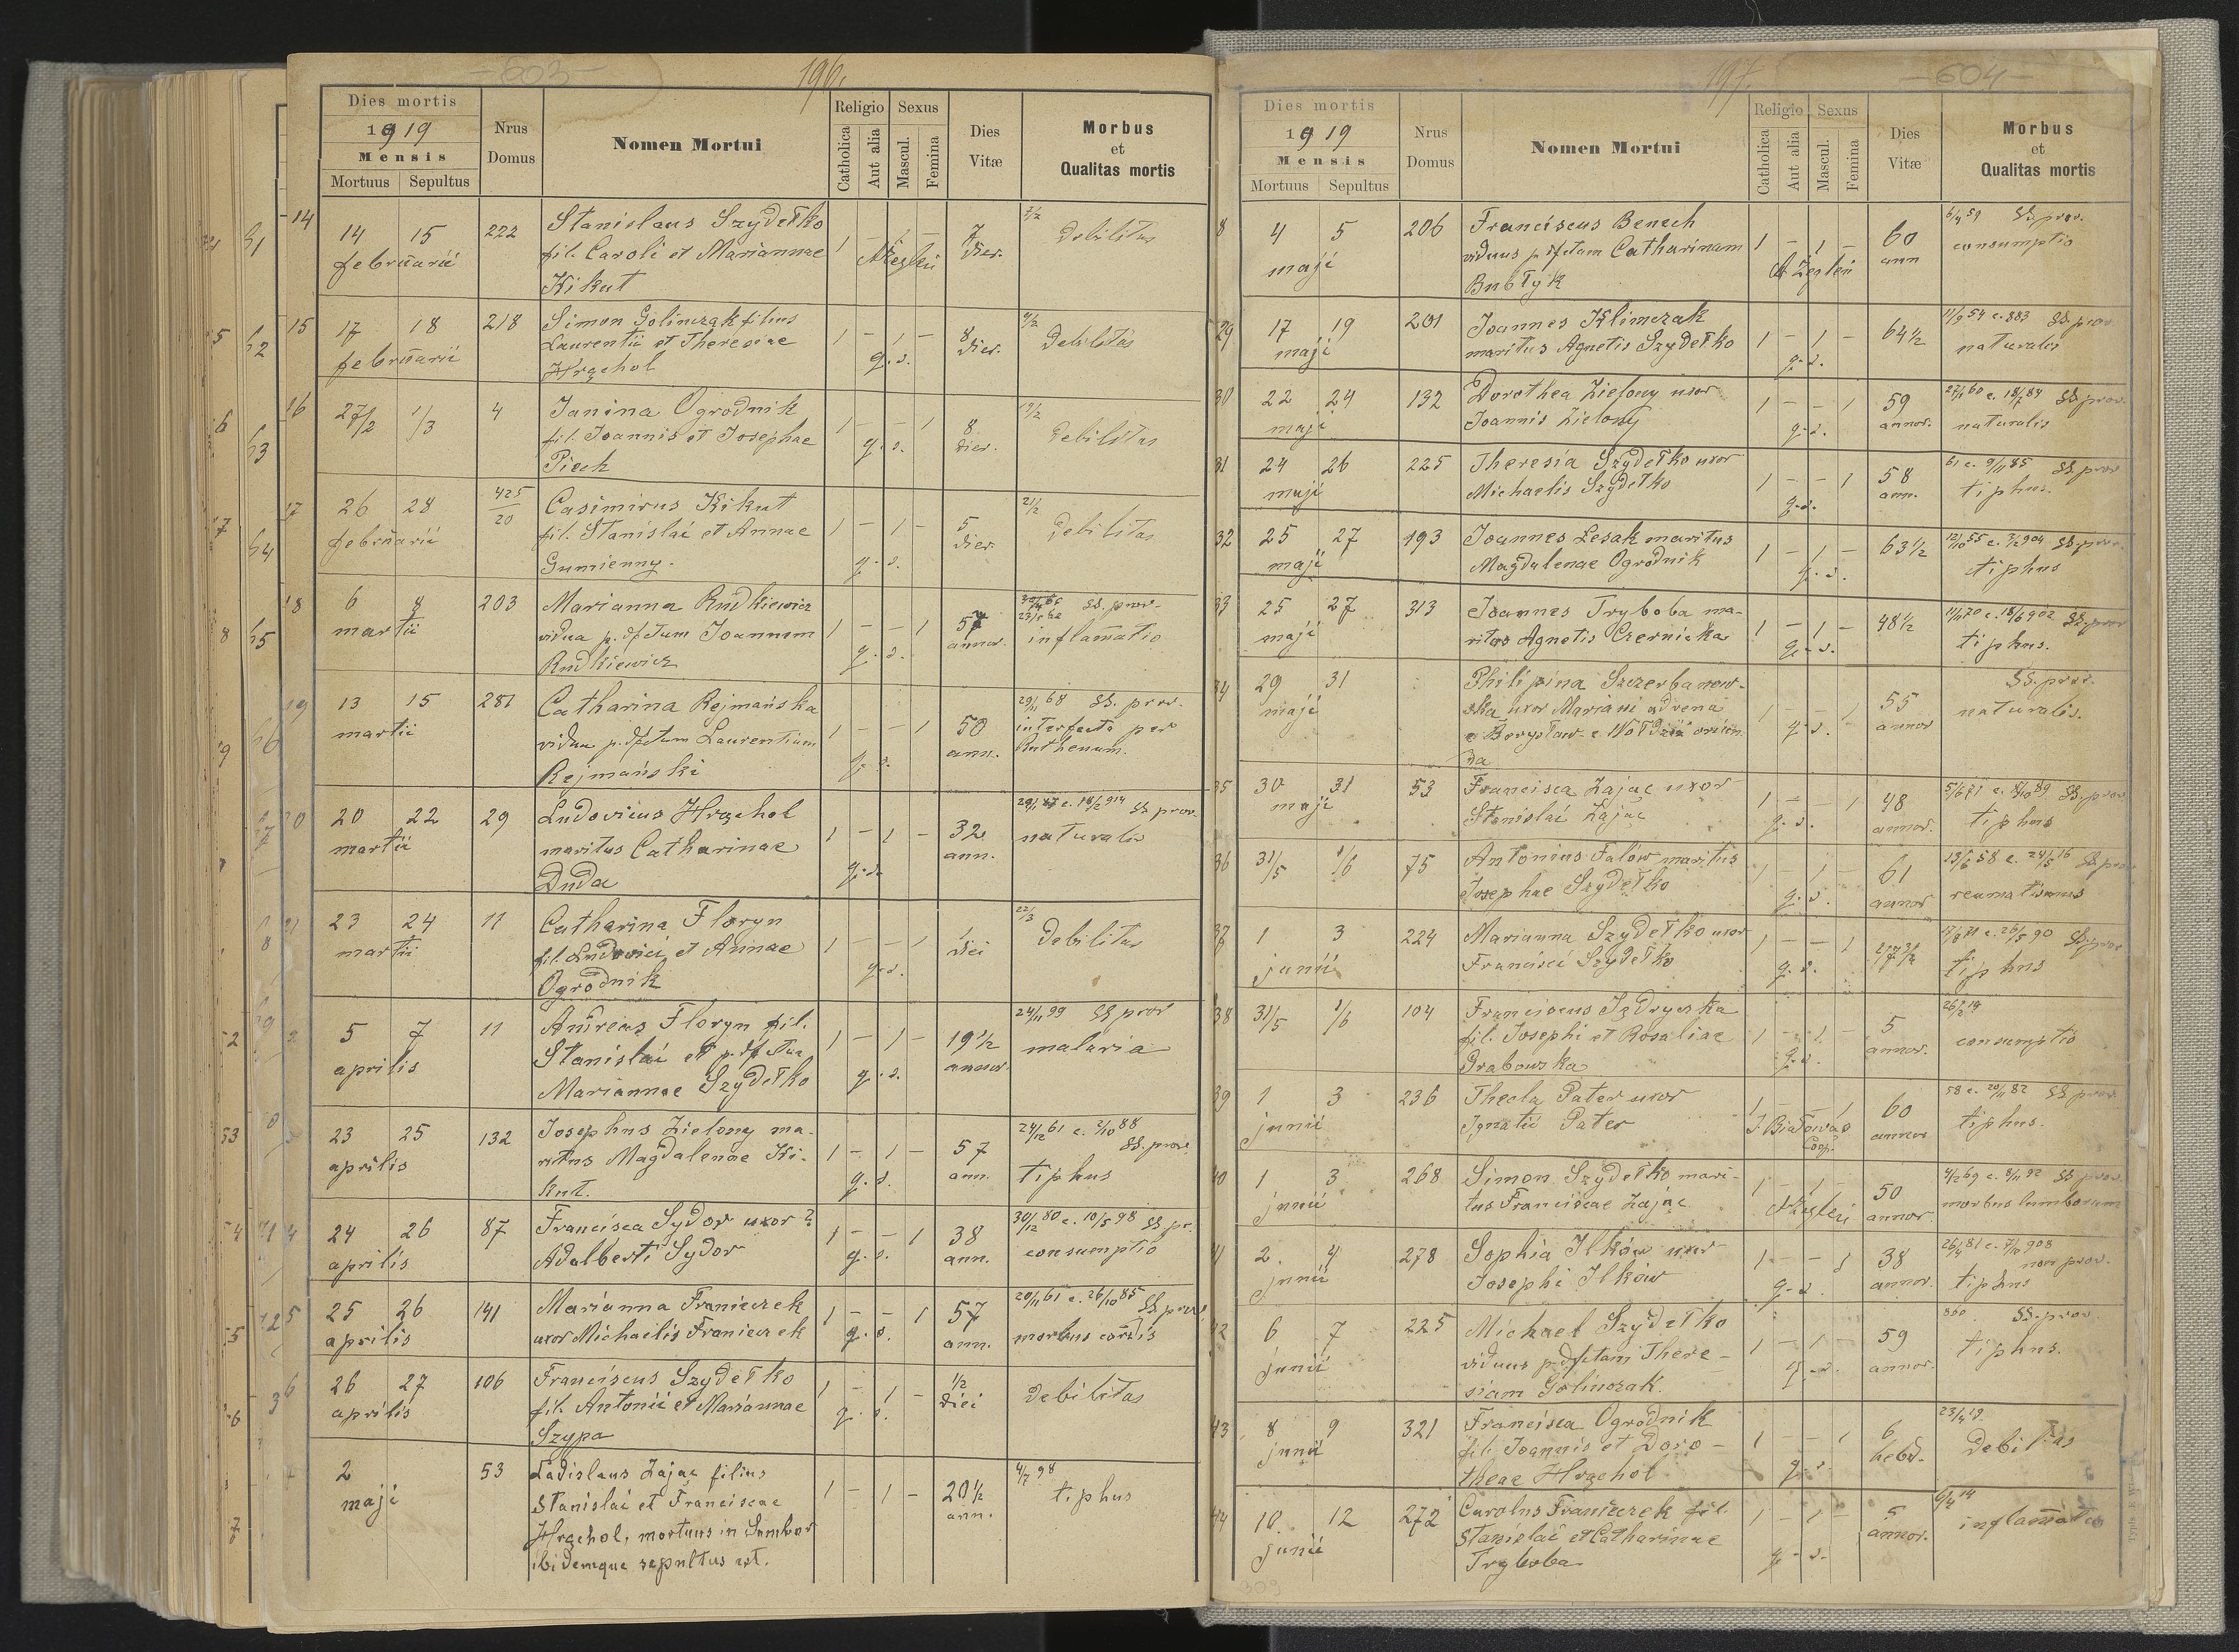 - 603 -
196.
Dies mortis
1919
Mensis
Mortuus Sepultus
Nrus Domus
Nomen Mortui
Religio
Catholica
Aut alia
Sexus
Mascul.
Femina
Dies Vitæ
Morbus
et
Qualitas mortis
14 14 15 222 Stanislaus Szydełko 1 - 1 - 7 7/2 Debilitas
februarii fil. Caroli et Mariannae dier.
Kikut
15 17 18 218 Simon Golinczak filius 1 - 1 - 8 9/2 Debilitas
februarii Laurentii et Theresiae q. s. dier.
Hrąchol
16 27/2 1/3 4 Janina Ogrodnik 1 - - 1 8 19/2 Debilitas
fil. Joannis et Josephae q. s. dier.
Piech
17 26 28 425/20 Casimirus Kikut 1 - 1 - 5 21/2 Debilitas
februarii fil. Stanislai et Annae q. s. dier.
Gumienny.
18 6 8 203 Marianna Rudkiewicz 1 - - 1 57 SS. prov.
martii vidua p. dfctum Joannem q. s. annor. inflamatio
Rudkiewicz
19 13 15 281 Catharina Rejmańska 1 - - 1 50 29/11 68 SS. prov.
martii vidua p. dfctum Laurentium q. s. ann. interfecta per
Rejmański Ruthenum.
20 20 22 29 Ludovicus Hrąchol 1 - 1 - 32 SS prov.
martii maritus Catharinae q. s. ann. naturalis
Duda
21 23 24 11 Catharina Floryn 1 - - 1 1 22/3 Debilitas
martii fil. Ludovici et Annae q. s. diei
Ogrodnik
5 7 11 Andreas Floryn fil. 1 - 1 - 19 1/2 24/11 99 SS prov
aprilis Stanislai et p. dfctae q. s. annor. malaria
Mariannae Szydełko
23 25 132 Josephus Zielony ma- 1 - 1 - 57 24/12 61 c. 2/10 88 SS. prov.
aprilis ritus Magdalenae Ki- q. s. ann. tiphus
kut.
4 24 26 87 Francisca Sydor uxor 1 - - 1 38 30/12 80 c. 10/5 98 SS pr.
aprilis Adalberti Sydor q. s. ann. consumptio
5 25 26 141 Marianna Franiczek 1 - - 1 57 20/11 61 c. 26/10 85 SS prov.
aprilis uxor Michaelis Franiczek q. s. ann. morbus cordis
6 26 27 106 Franciscus Szydełko 1 - 1 - 1/2 Debilitas
aprilis fil. Antonii et Mariannae q. s. diei
Szypa
2 53 Ladislaus Zając filius 1 - 1 - 20 1/2 4/7 98 tiphus
maji Stanislai et Franciscae ann.
Hrąchol, mortuus in Sambor
ibidemque sepultus est.
197.
- 604 -
Dies mortis
1919
Mensis
Mortuus Sepultus
Nrus Domus
Nomen Mortui
Religio
Catholica
Aut alia
Sexus
Mascul.
Femina
Dies Vitæ
Morbus
et
Qualitas mortis
8 4 5 206 Franciscus Benech 1 - 1 - 60 6/4 59 SS. prov.
maji viduus p. dfctam Catharinam ann consumptio
Bubłyk
29 17 19 201 Joannes Klimczak 1 - 1 - 64 1/2 11/9 54 c. 883 SS. prov
maji maritus Agnetis Szydełko q. s. naturalis
30 22 24 132 Dorothea Zielony uxor 1 - - 1 59 SS prov.
maji Joannis Zielony q. s. annor. naturalis
31 24 26 225 Theresia Szydełko uxor 1 - - 1 58 61 c. 9/11 85 SS prov
maji Michaelis Szydełko q. s. ann. tiphus.
32 25 27 193 Joannes Lesak maritus 1 - 1 - 63 1/2 12/10 55 c. 3/2 904 SS prov.
maji Magdalenae Ogrodnik q. s. tiphus
33 25 27 313 Joannes Tryboba ma- 1 - 1 - 48 1/2 SS. prov
maji ritus Agnetis Czernicka q. s. tiphus.
34 29 31 Philipina Szczerbanow- 1 - - 1 55 SS. prov.
maji ska uxor Mariani advena q. s. annor naturalis.
e Borysław
35 30 31 53 Francisca Zając uxor 1 - - 1 48 SS. prov
maji Stanislai Zając q. s. annor. tiphus
36 31/5 1/6 75 Antonius Falów maritus 1 - 1 - 61 13/6 58 c. 24/5 16 SS prov
Josephae Szydełko q. s. annor reumatismus
37 1 3 224 Marianna Szydełko uxor 1 - - 1 SS. prov
junii Francisci Szydełko q. s. tiphus
38 31/5 1/6 104 Franciscus 1 - 1 - 5
fil. Josephi et Rosaliae q. s. annor. consumptio
Grabowska
39 1 3 236 Thecla Pater uxor 1 - - 1 60 58 c. 20/11 82 SS prov
junii Ignatii Pater J. Białowąs Coop. annor tiphus.
40 1 3 268 Simon Szydełko mari- 1 - 1 - 50 4/2 69 c. 8/11 92 SS prov.
junii tus Franciscae Zając annor. morbus lumborum
41 2. 4 278 Sophia Ilków uxor 1 - - 1 38 26/4 81 c. 7/10 908 non prov.
junii Josephi Ilków q. s. annor. tiphus
42 6 7 225 Michael Szydełko 1 - 1 - 59 860 SS. prov
junii viduus p. dfctam There- q. s. annor. tiphus.
siam Golinczak.
43 8 9 321 Francisca Ogrodnik 1 - - 1 6 23/4 19. Debilitas
junii fil. Joannis et Doro- q. s. hebd.
theae Hrąchol
44 10. 12 272 Carolus Franiczek fil. 1 - 1 - 5 6/4 14 inflamatio
junii Stanislai et Catharinae q. s. annor.
Tryboba
309